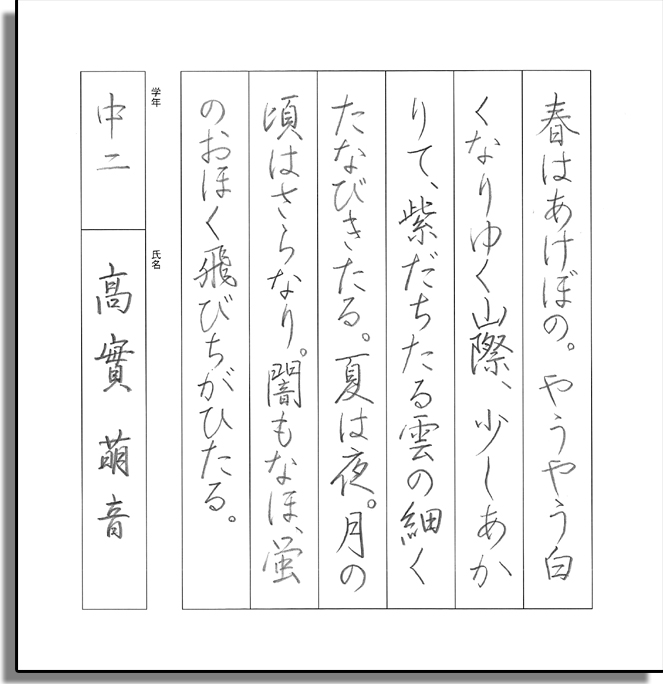 春はあけぼの。やうやう白
くなりゆく山際、少しあか
りて、紫だちたる雲の細く
たなびきたる。夏は夜。月の
頃はさらなり。闇もなほ、蛍
のおほく飛びちがひたる。
学年
中二
氏名
高實 萌音